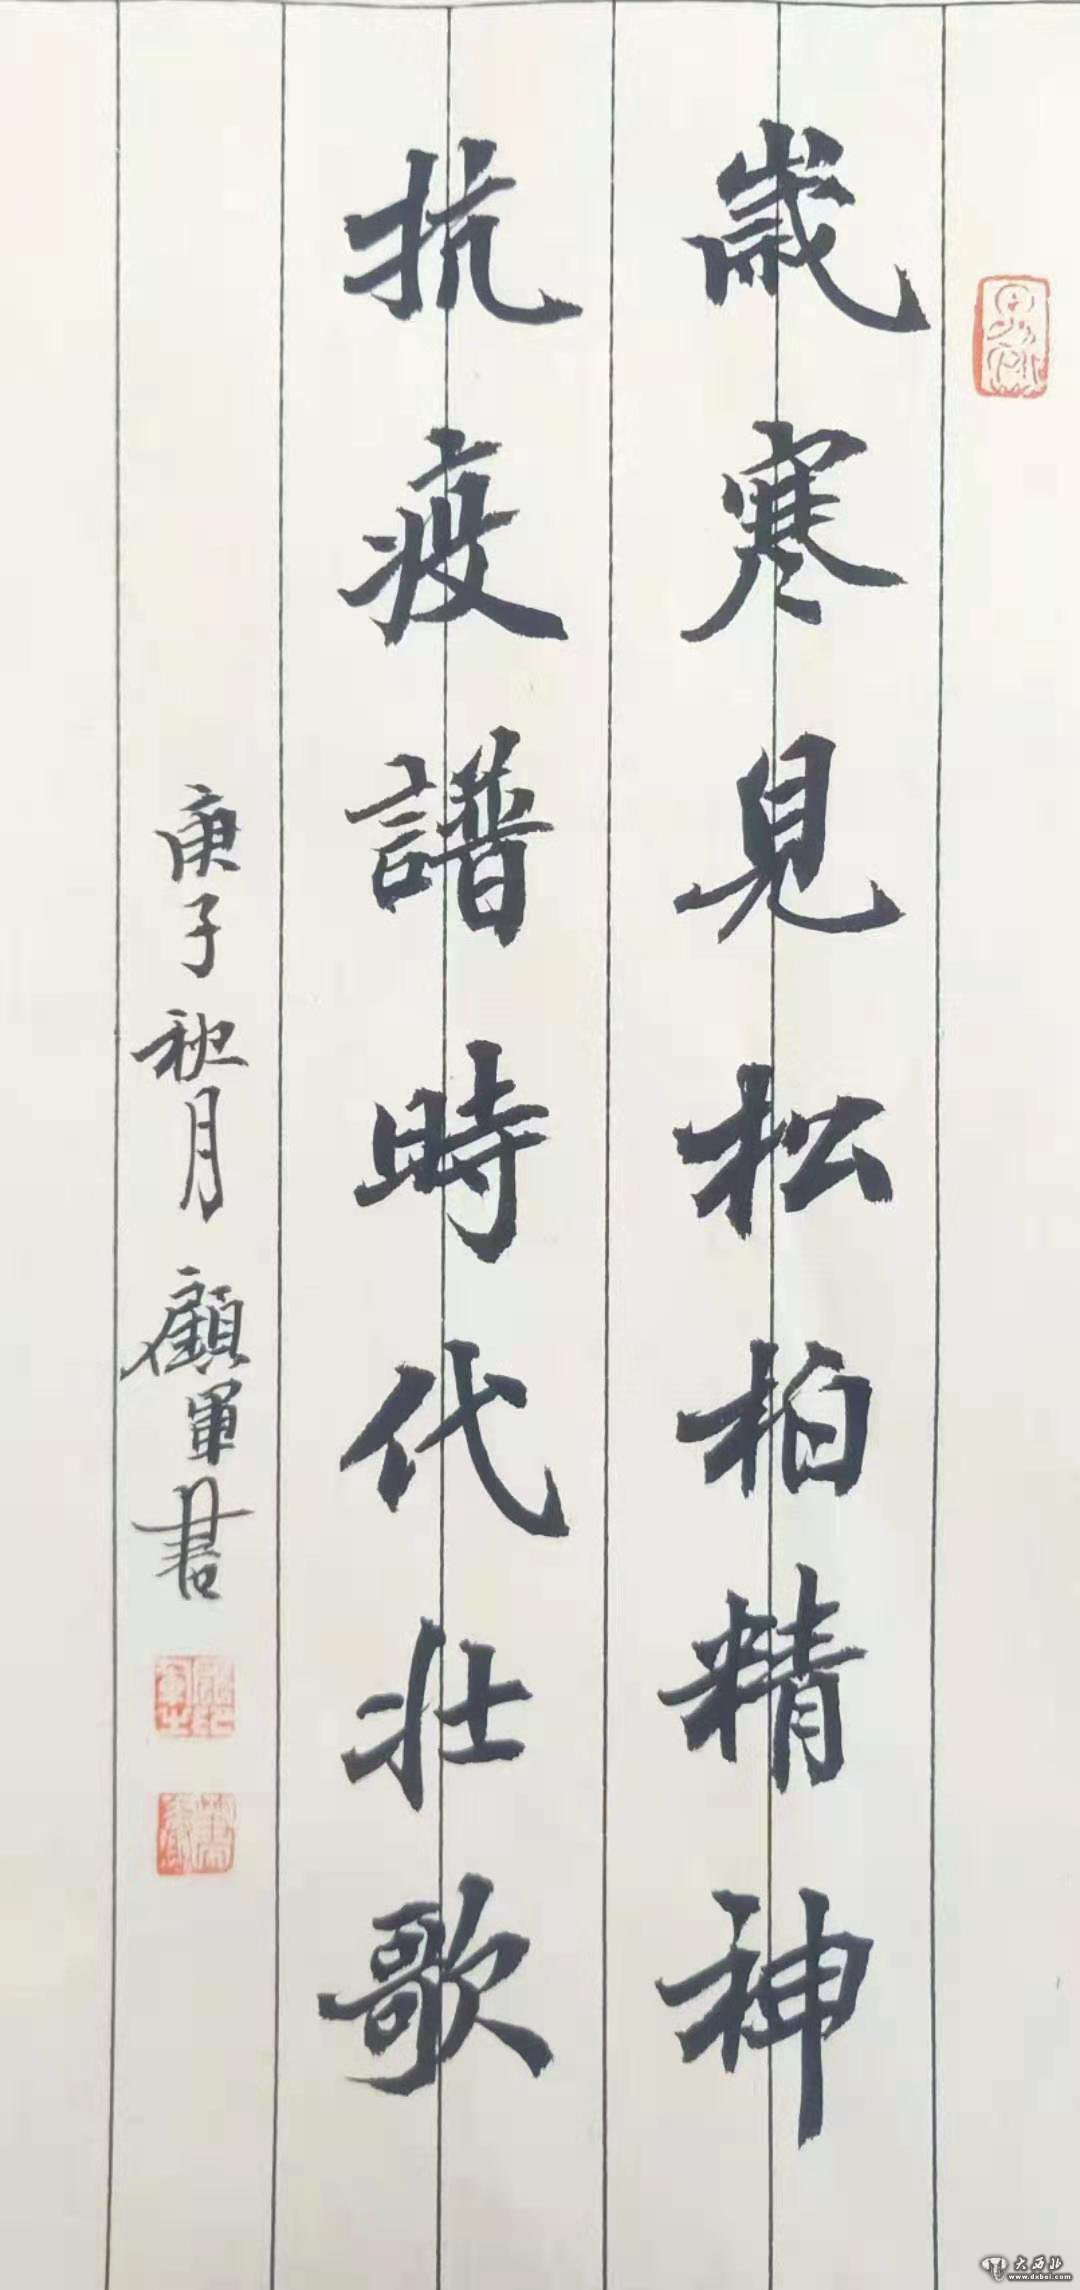 歲寒見松柏精神
抗疫譜時代壯歌
庚子秋月顧軍書
大西北
www.dxbei.com